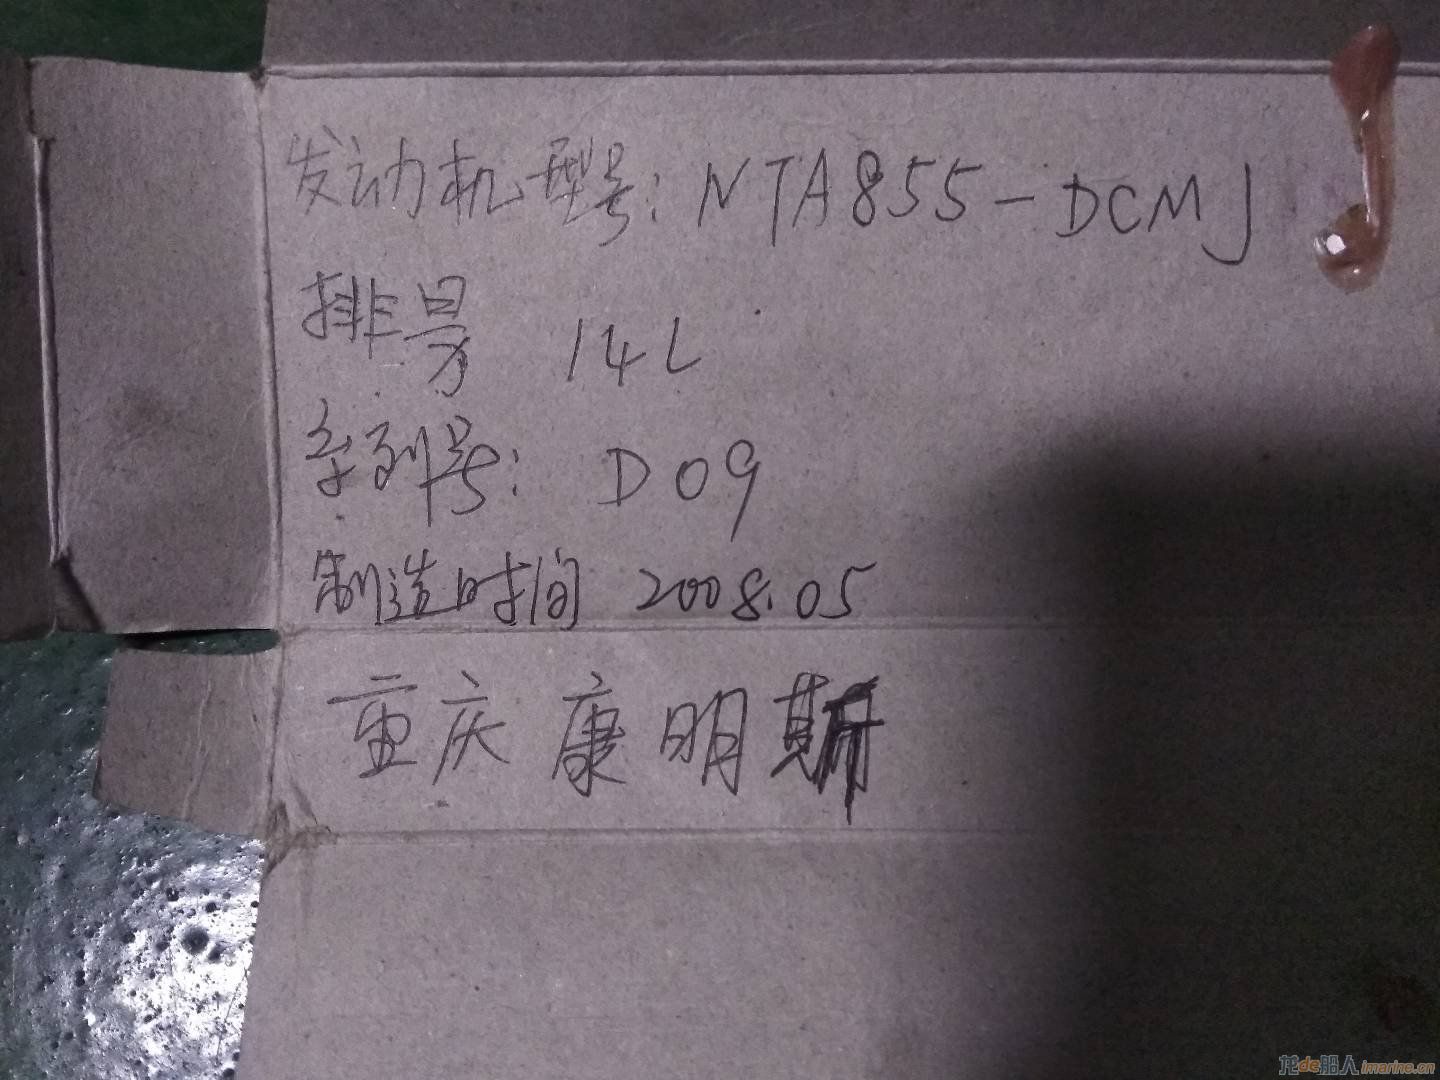 发动机型号: NTA855-DCMJ
排号 14L
系列号: D09
制造时间 2008.05
重庆 康明斯
龙de船人 imarine.cn